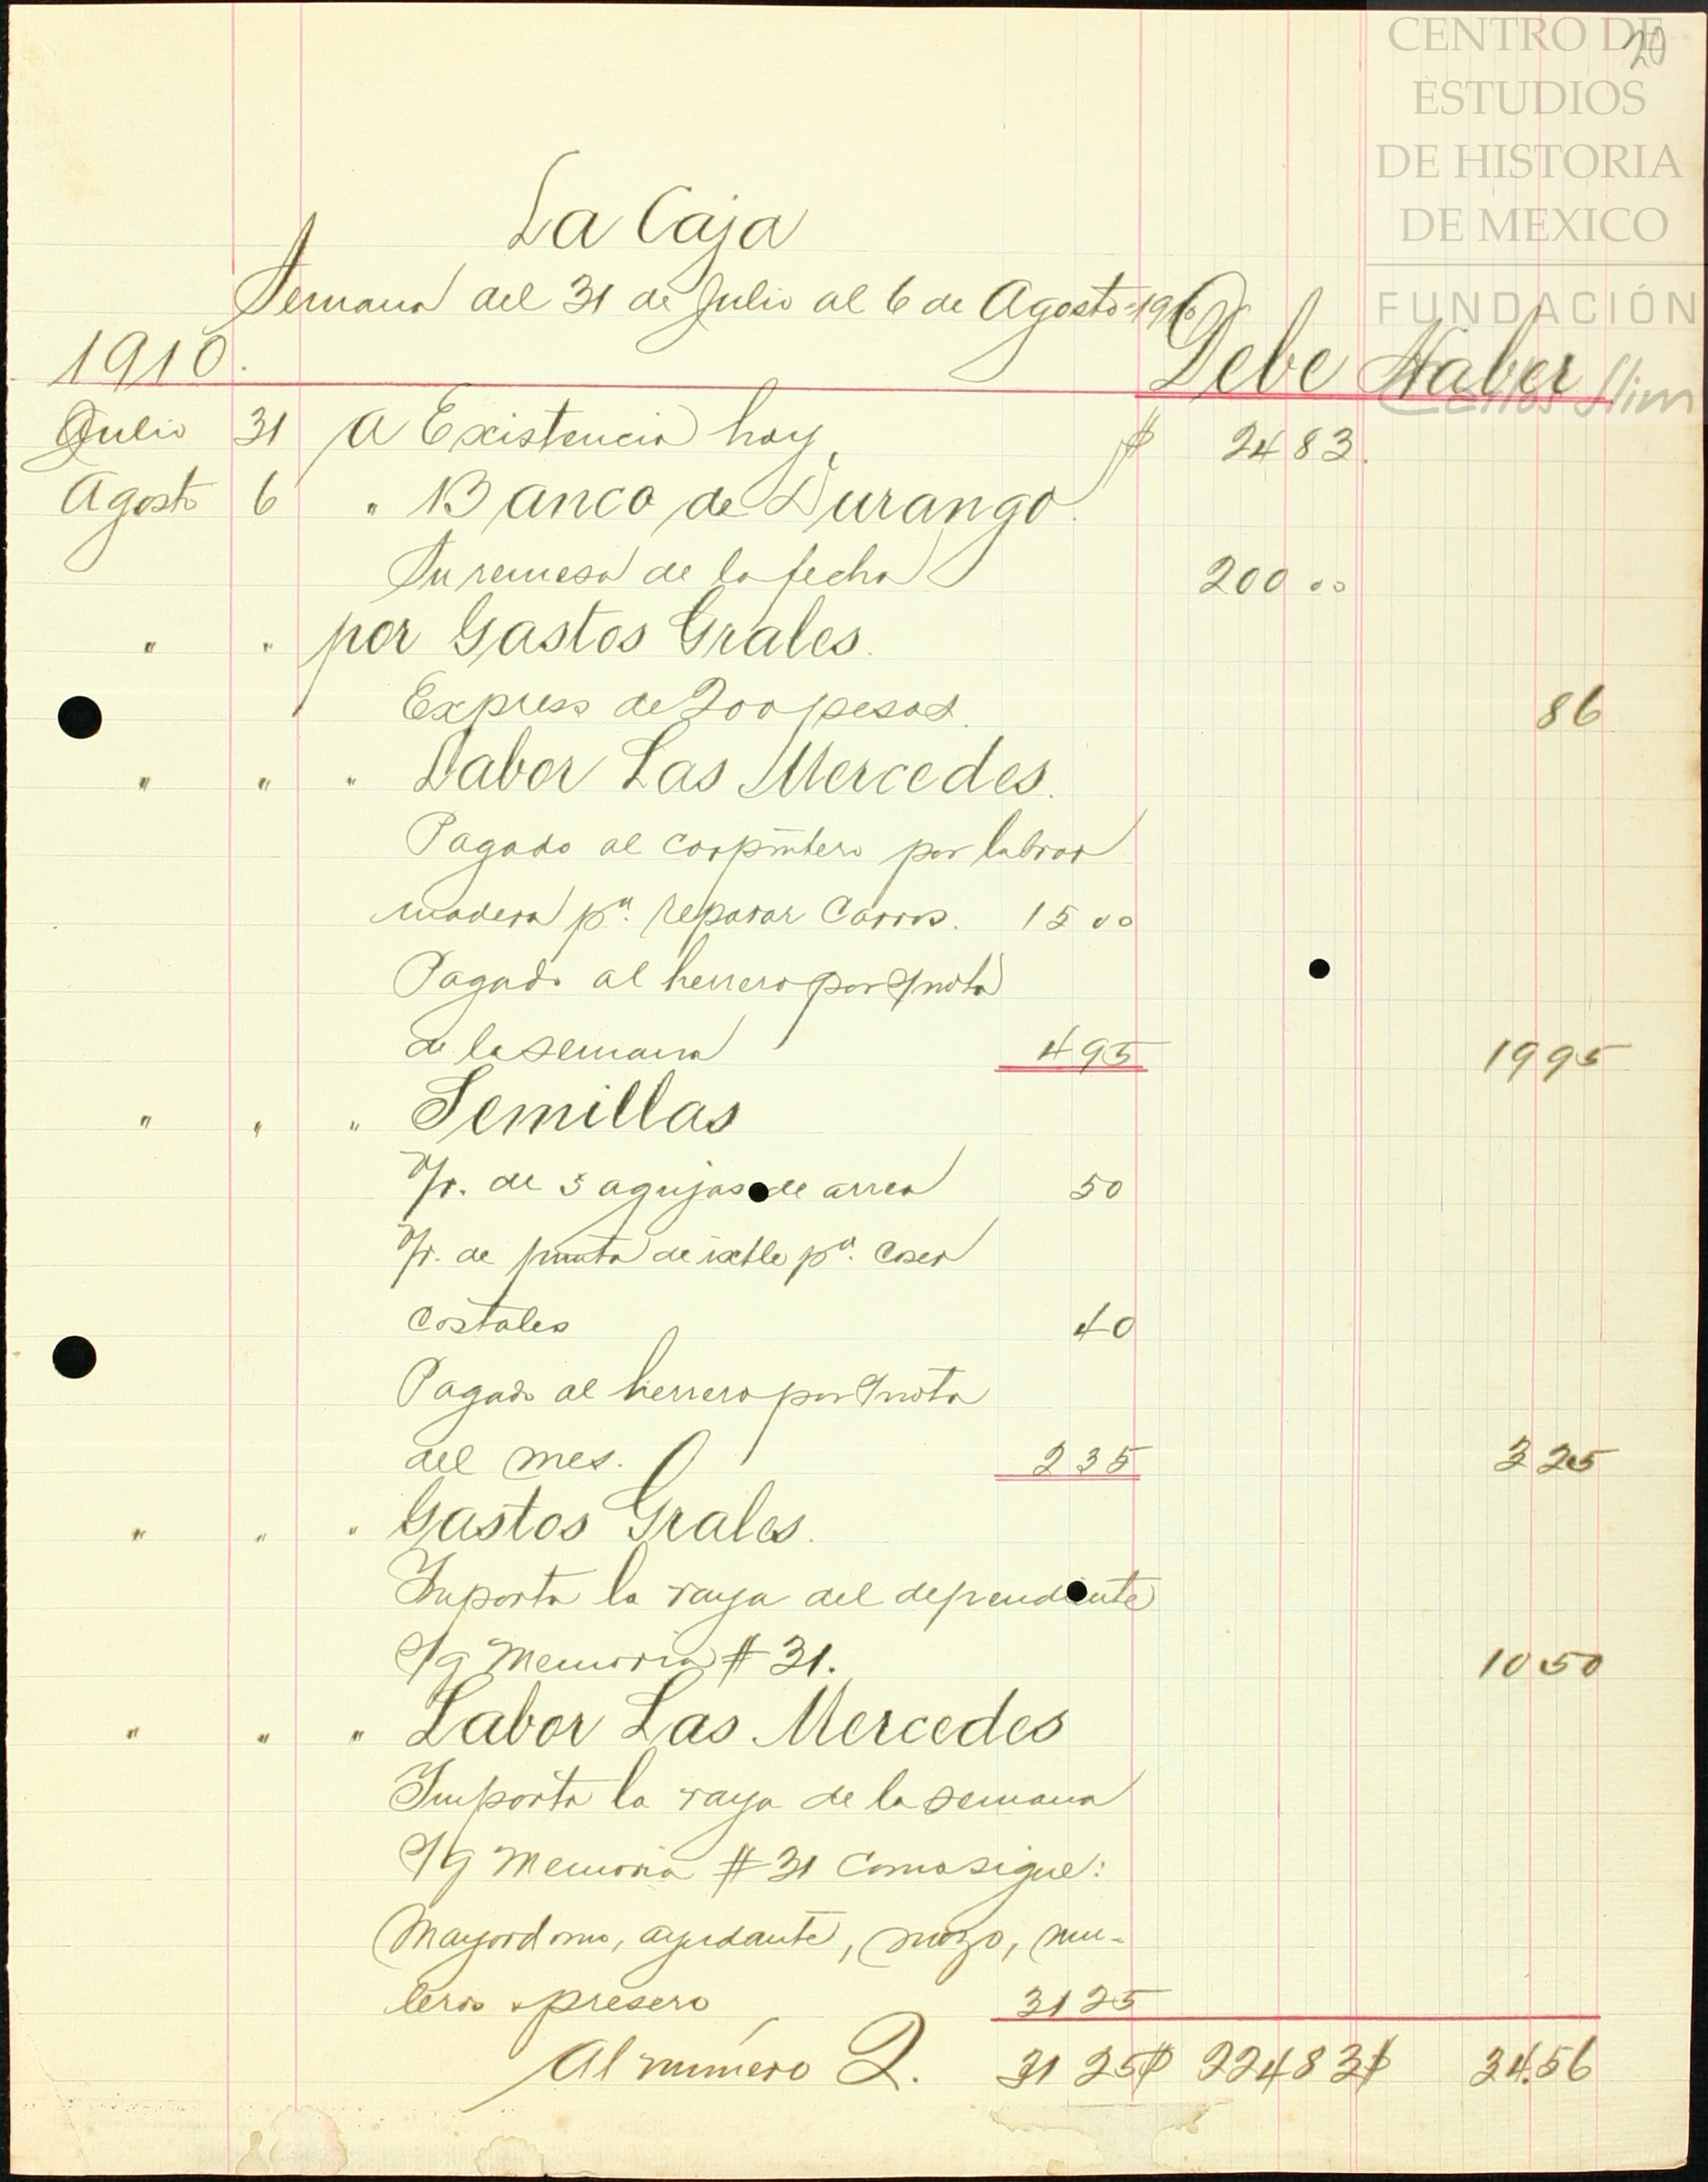 CENTRO DE
ESTUDIOS
DE HISTORIA
DE MEXICO
FUNDACIÓN
Carlos Slim
20
La Caja
Semana del 31 de Julio al 6 de Agosto 1910
1910. Debe Haber
Julio 31 A Existencia hoy $ 24 83.
Agosto 6 " Banco de Durango.
Su remesa de la fecha 200 00
" " por Gastos Grales.
Express de 200 pesos. 86
" " " Labor Las Mercedes.
Pagado al carpintero por labrar
madera pa. reparar Carros. 15 00
Pagado al herrero por S/nota
de la semana 4 95 19 95
" " " Semillas
V/r. de 5 agujas de arrea 50
V/r. de punta de ixtle pa. Coser
Costales 40
Pagado al herrero por S/nota
del mes. 2 35 3 25
" " " Gastos Grales.
Importa la raya del dependiente
S/g Memoria # 31. 10 50
" " " Labor Las Mercedes
Importa la raya de la semana
S/g Memoria # 31 Como sigue:
Mayordomo, ayudante, mozo, mu-
leros y presero 31 25
Al número 2. 31 25 $ 224 83 $ 34.56